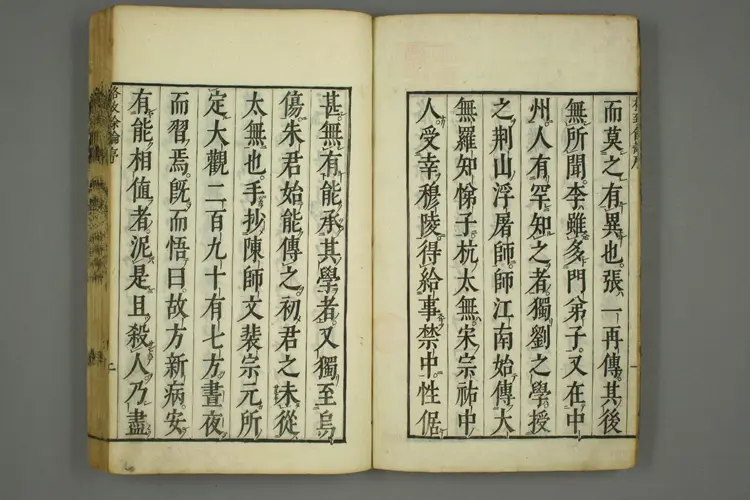 而莫之有異也張一再傳其後
無所聞李雖多門弟子又在中
州人有罕知之者獨劉之學授
之荆山浮屠師師江南始傳大
無羅知悌子杭太無宋宗祐中
人受幸穆陵得給事禁中性倨
甚無有能承其學者又獨至烏
傷朱君始能傳之初君之未從
太無也手抄陳師文裴宗元所
定大觀二百九十有七方晝夜
而習焉旣而悟曰故方新病安
有能相值者泥是且殺人乃盡
格致餘論序
二